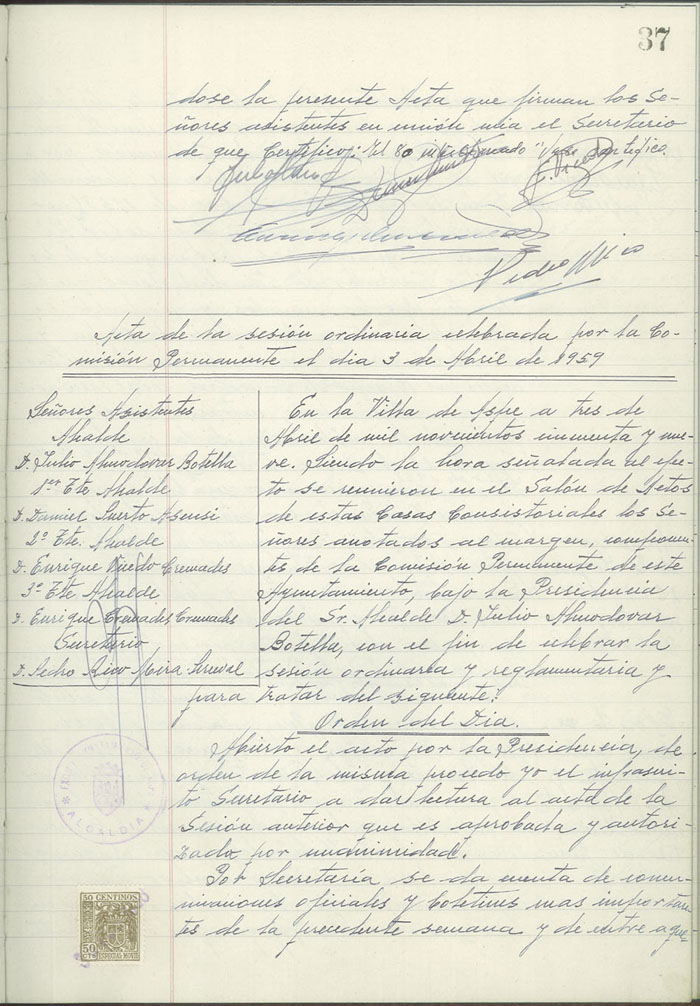 37
dose la presente Acta que firman los Se-
ñores asistentes en unión mia el Secretario
de que Certifico:
Pedro Rico
Acta de la sesión ordinaria celebrada por la Co-
misión Permanente el dia 3 de Abril de 1959
Señores Asistentes
Alcalde
D. Julio Almodovar Botella
1er Tte Alcalde
D. Daniel Puerto Asensi
2º Tte. Alcalde
D. Enrique Cremades
3º Tte Alcalde
D. Enrique Cremades Cremades
Secretario
D. Pedro Rico Mira
En la Villa de Aspe a tres de
Abril de mil novecientos cincuenta y nue-
ve. Siendo la hora señalada al efec-
to se reunieron en el Salón de Actos
de estas Casas Consistoriales los Se-
ñores anotados al margen, componen-
tes de la Comisión Permanente de este
Ayuntamiento, bajo la Presidencia
del Sr. Alcalde D. Julio Almodovar
Botella, con el fin de celebrar la
sesión ordinaria y reglamentaria y
para tratar del siguiente:
Orden del Dia.
Abierto el acto por la Presidencia, de
orden de la misma procedo yo el infrascri-
to Secretario a dar lectura al acta de la
Sesión anterior que es aprobada y autori-
zada por unanimidad.
Por Secretaría se da cuenta de comu-
nicaciones oficiales y Boletines mas importan-
tes de la precedente semana y de entre aque-
ALCALDIA
50 CENTIMOS
50
CTS
ESPECIAL MOVIL